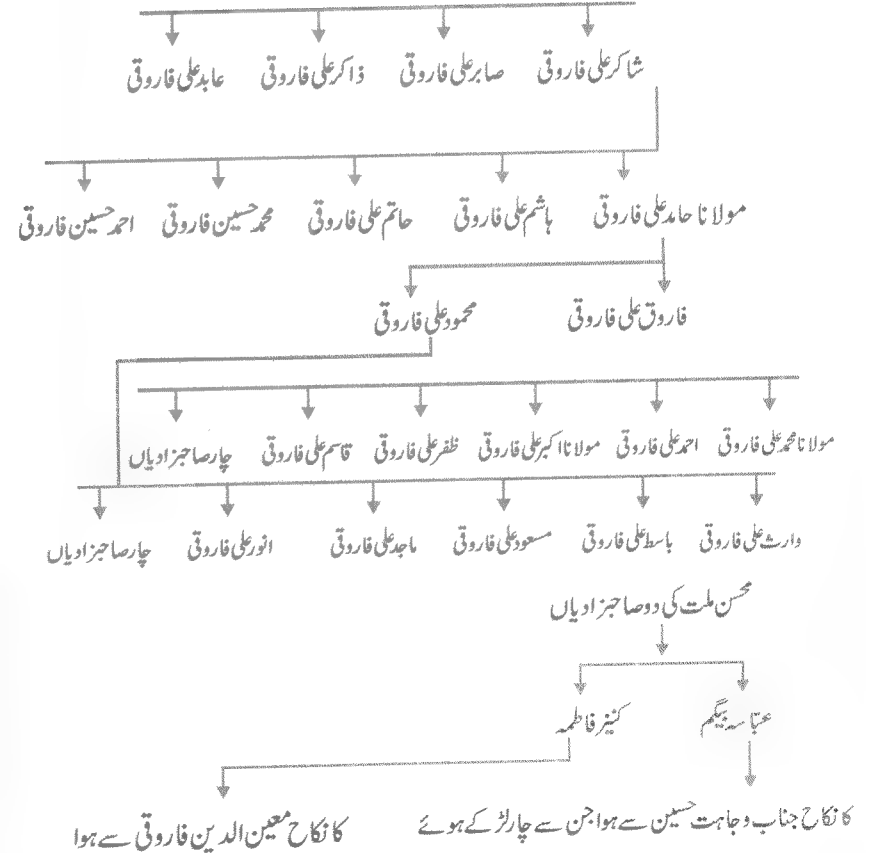 شاکر علی فاروقی صابر علی فاروقی ذاکر علی فاروقی عابد علی فاروقی
مولانا حامد علی فاروقی ہاشم علی فاروقی حاتم علی فاروقی محمد حسین فاروقی احمد حسین فاروقی
فاروق علی فاروقی محمود علی فاروقی
مولانا محمد علی فاروقی احمد علی فاروقی مولانا اکبر علی فاروقی ظفر علی فاروقی قاسم علی فاروقی چار صاحبزادیاں
وارث علی فاروقی باسط علی فاروقی مسعود علی فاروقی ماجد علی فاروقی انور علی فاروقی چار صاحبزادیاں
محسن ملت کی دو صاحبزادیاں
عبّاسہ بیگم کنیز فاطمہ
کا نکاح جناب وجاہت حسین سے ہوا جن سے چار لڑکے ہوئے
کا نکاح معین الدین فاروقی سے ہوا